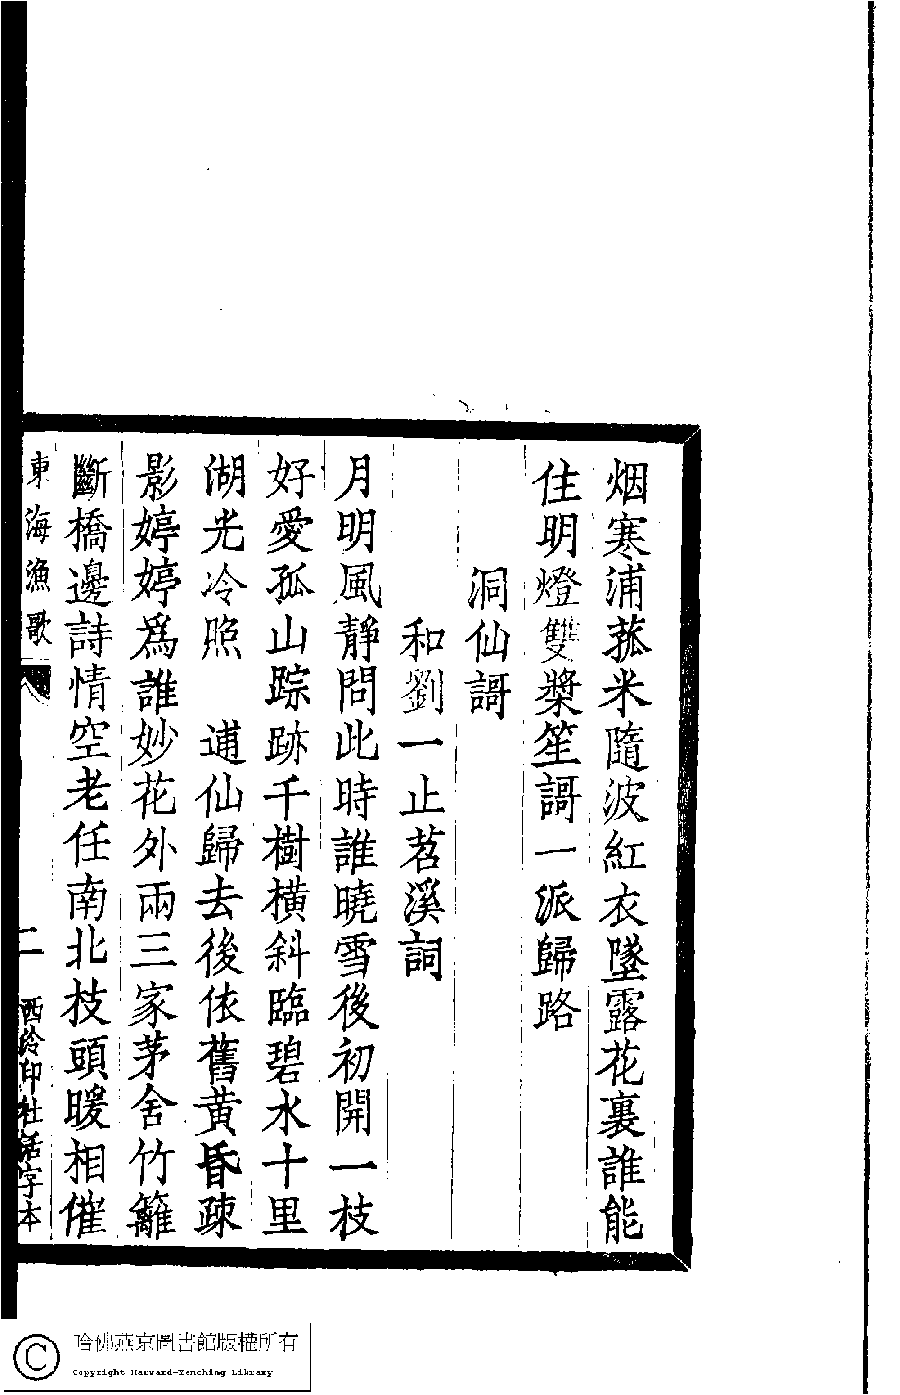 烟寒浦菰米隨波紅衣墜露花裏誰能
住明燈雙槳笙謌一派歸路
洞仙謌
和劉一止苕溪詞
月明風靜問此時誰曉雪後初開一枝
好愛孤山踪跡千樹橫斜臨碧水十里
湖光冷照　逋仙歸去後依舊黃昏疎
影婷婷爲誰妙花外兩三家茅舍竹籬
斷橋邊詩情空老任南北枝頭暖相催
東海漁歌
二
西泠印社活字本
哈佛燕京圖書館版權所有
Copyright Harvard-Yenching Library